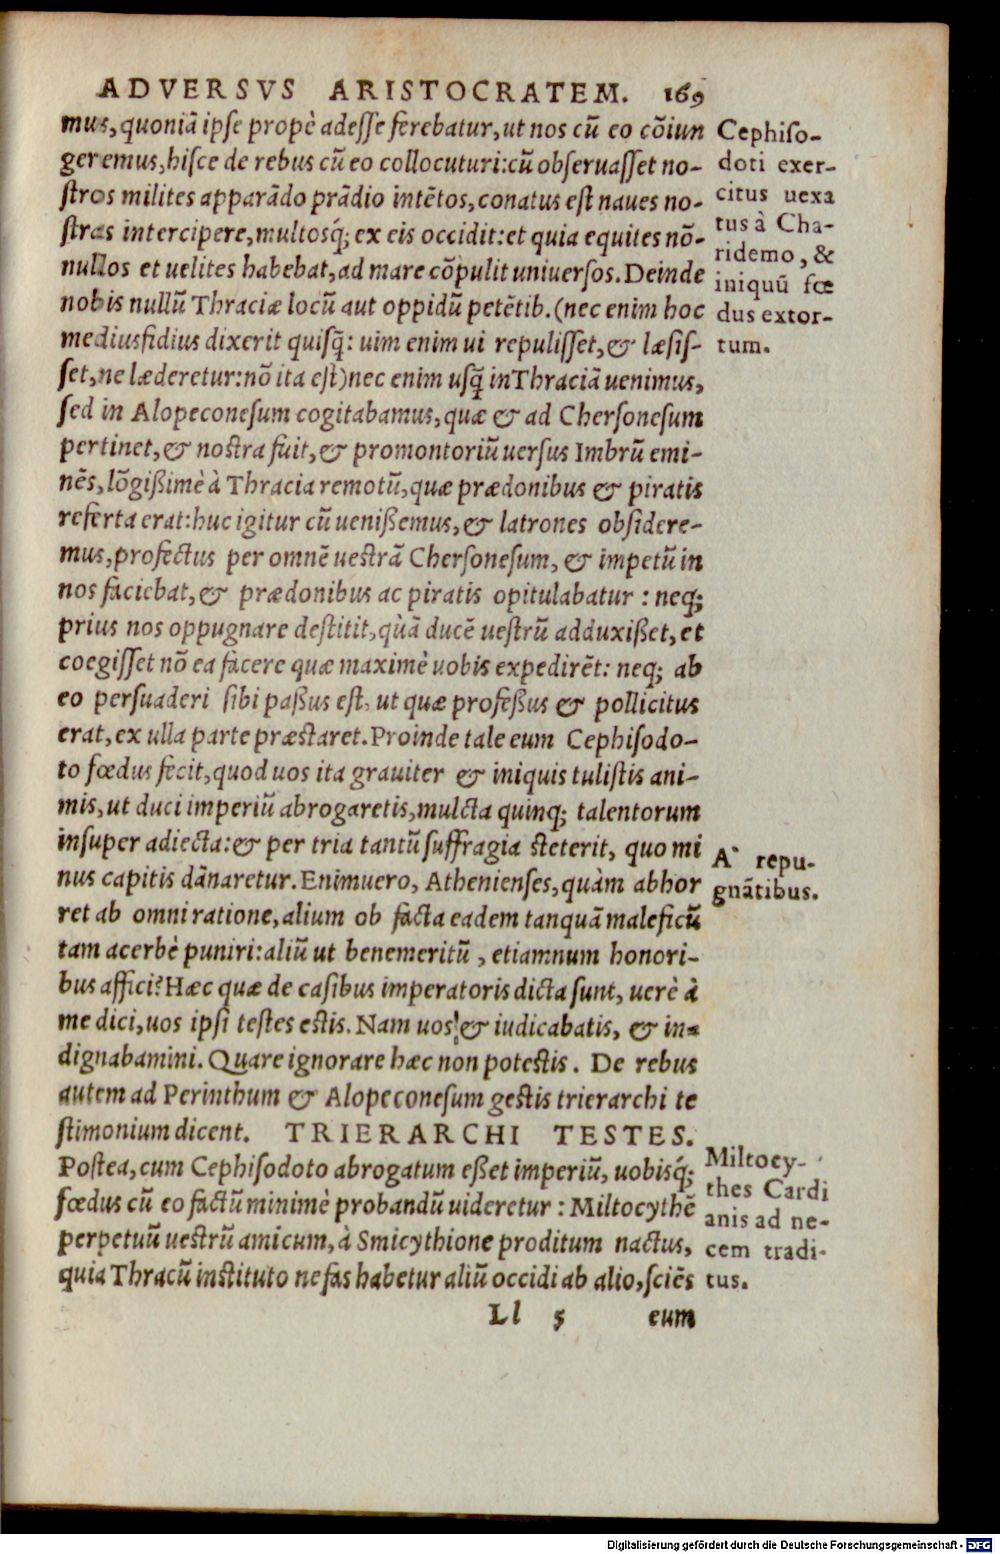 ADVERSVS ARISTOCRATEM. 169
mus, quoniã ipse propè adesse ferebatur, ut nos cũ eo cõiun
geremus, hisce de rebus cũ eo collocuturi: cũ obseruasset no-
stros milites apparãdo prãdio intẽtos, conatus est naues no-
stras intercipere, multosq́; ex eis occidit: et quia equites nõ-
nullos et uelites habebat, ad mare cõpulit uniuersos. Deinde
nobis nullũ Thraciæ locũ aut oppidũ petẽtib. (nec enim hoc
mediusfidius dixerit quisq̃: uim enim ui repulisset, & læsis-
set, ne læderetur: nõ ita est) nec enim usq̃ in Thraciã uenimus,
sed in Alopeconesum cogitabamus, quæ & ad Chersonesum
pertinet, & nostra fuit, & promontoriũ uersus Imbrũ emi-
nẽs, lõgißimè à Thracia remotũ, quæ prædonibus & piratis
referta erat: huc igitur cũ uenißemus, & latrones obsidere-
mus, profectus per omnẽ uestrã Chersonesum, & impetũ in
nos faciebat, & prædonibus ac piratis opitulabatur: neq;
prius nos oppugnare destitit, quã ducẽ uestrũ adduxißet, et
coegisset nõ ea facere quæ maximè uobis expedirẽt: neq; ab
eo persuaderi sibi paßus est, ut quæ profeßus & pollicitus
erat, ex ulla parte præstaret. Proinde tale eum Cephisodo-
to fœdus fecit, quod uos ita grauiter & iniquis tulistis ani-
mis, ut duci imperiũ abrogaretis, mulcta quinq; talentorum
insuper adiecta: & per tria tantũ suffragia steterit, quo mi
nus capitis dãnaretur. Enimuero, Athenienses, quàm abhor
ret ab omni ratione, alium ob facta eadem tanquã maleficũ
tam acerbè puniri: aliũ ut benemeritũ, etiamnum honori-
bus affici? Hæc quæ de casibus imperatoris dicta sunt, uerè à
me dici, uos ipsi testes estis. Nam uos & iudicabatis, & in-
dignabamini. Quare ignorare hæc non potestis. De rebus
autem ad Perinthum & Alopeconesum gestis trierarchi te
stimonium dicent. TRIERARCHI TESTES.
Postea, cum Cephisodoto abrogatum eßet imperiũ, uobisq́;
fœdus cũ eo factũ minimè probandũ uideretur: Miltocythẽ
perpetuũ uestrũ amicum, à Smicythione proditum nactus,
quia Thracũ instituto nefas habetur aliũ occidi ab alio, sciẽs
Ll 5 eum
Cephiso-
doti exer-
citus uexa
tus à Cha-
ridemo, &
iniquũ fœ
dus extor-
tum.
A' repu-
gnãtibus.
Miltocy-
thes Cardi
anis ad ne-
cem tradi-
tus.
Digitalisierung gefördert durch die Deutsche Forschungsgemeinschaft - DFG